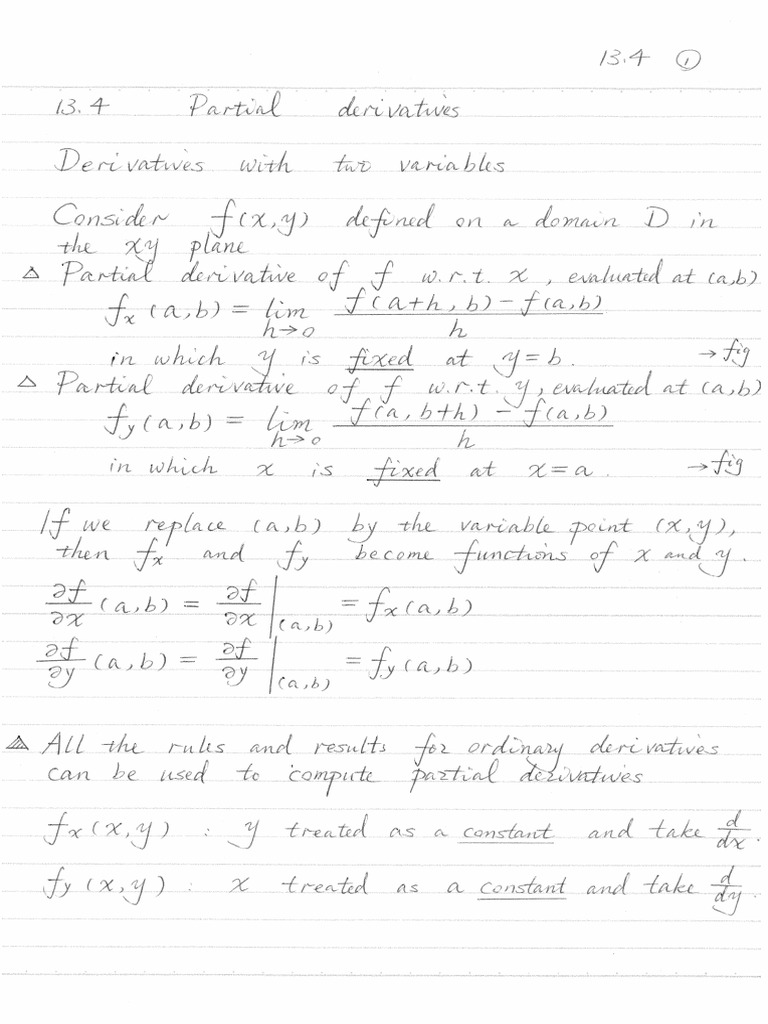 13.4 ①
13.4 Partial derivatives
Derivatives with two variables
Consider f(x,y) defined on a domain D in
the xy plane
△ Partial derivative of f w.r.t. x, evaluated at (a,b)
fₓ(a,b) = lim h→0 f(a+h, b) − f(a,b) / h
in which y is fixed at y=b. → fig
△ Partial derivative of f w.r.t. y, evaluated at (a,b)
f_y(a,b) = lim h→0 f(a, b+h) − f(a,b) / h
in which x is fixed at x=a. → fig
If we replace (a,b) by the variable point (x,y),
then fₓ and f_y become functions of x and y.
∂f/∂x (a,b) = ∂f/∂x |(a,b) = fₓ(a,b)
∂f/∂y (a,b) = ∂f/∂y |(a,b) = f_y(a,b)
△ All the rules and results for ordinary derivatives
can be used to compute partial derivatives
fₓ(x,y) : y treated as a constant and take d/dx.
f_y(x,y) : x treated as a constant and take d/dy.